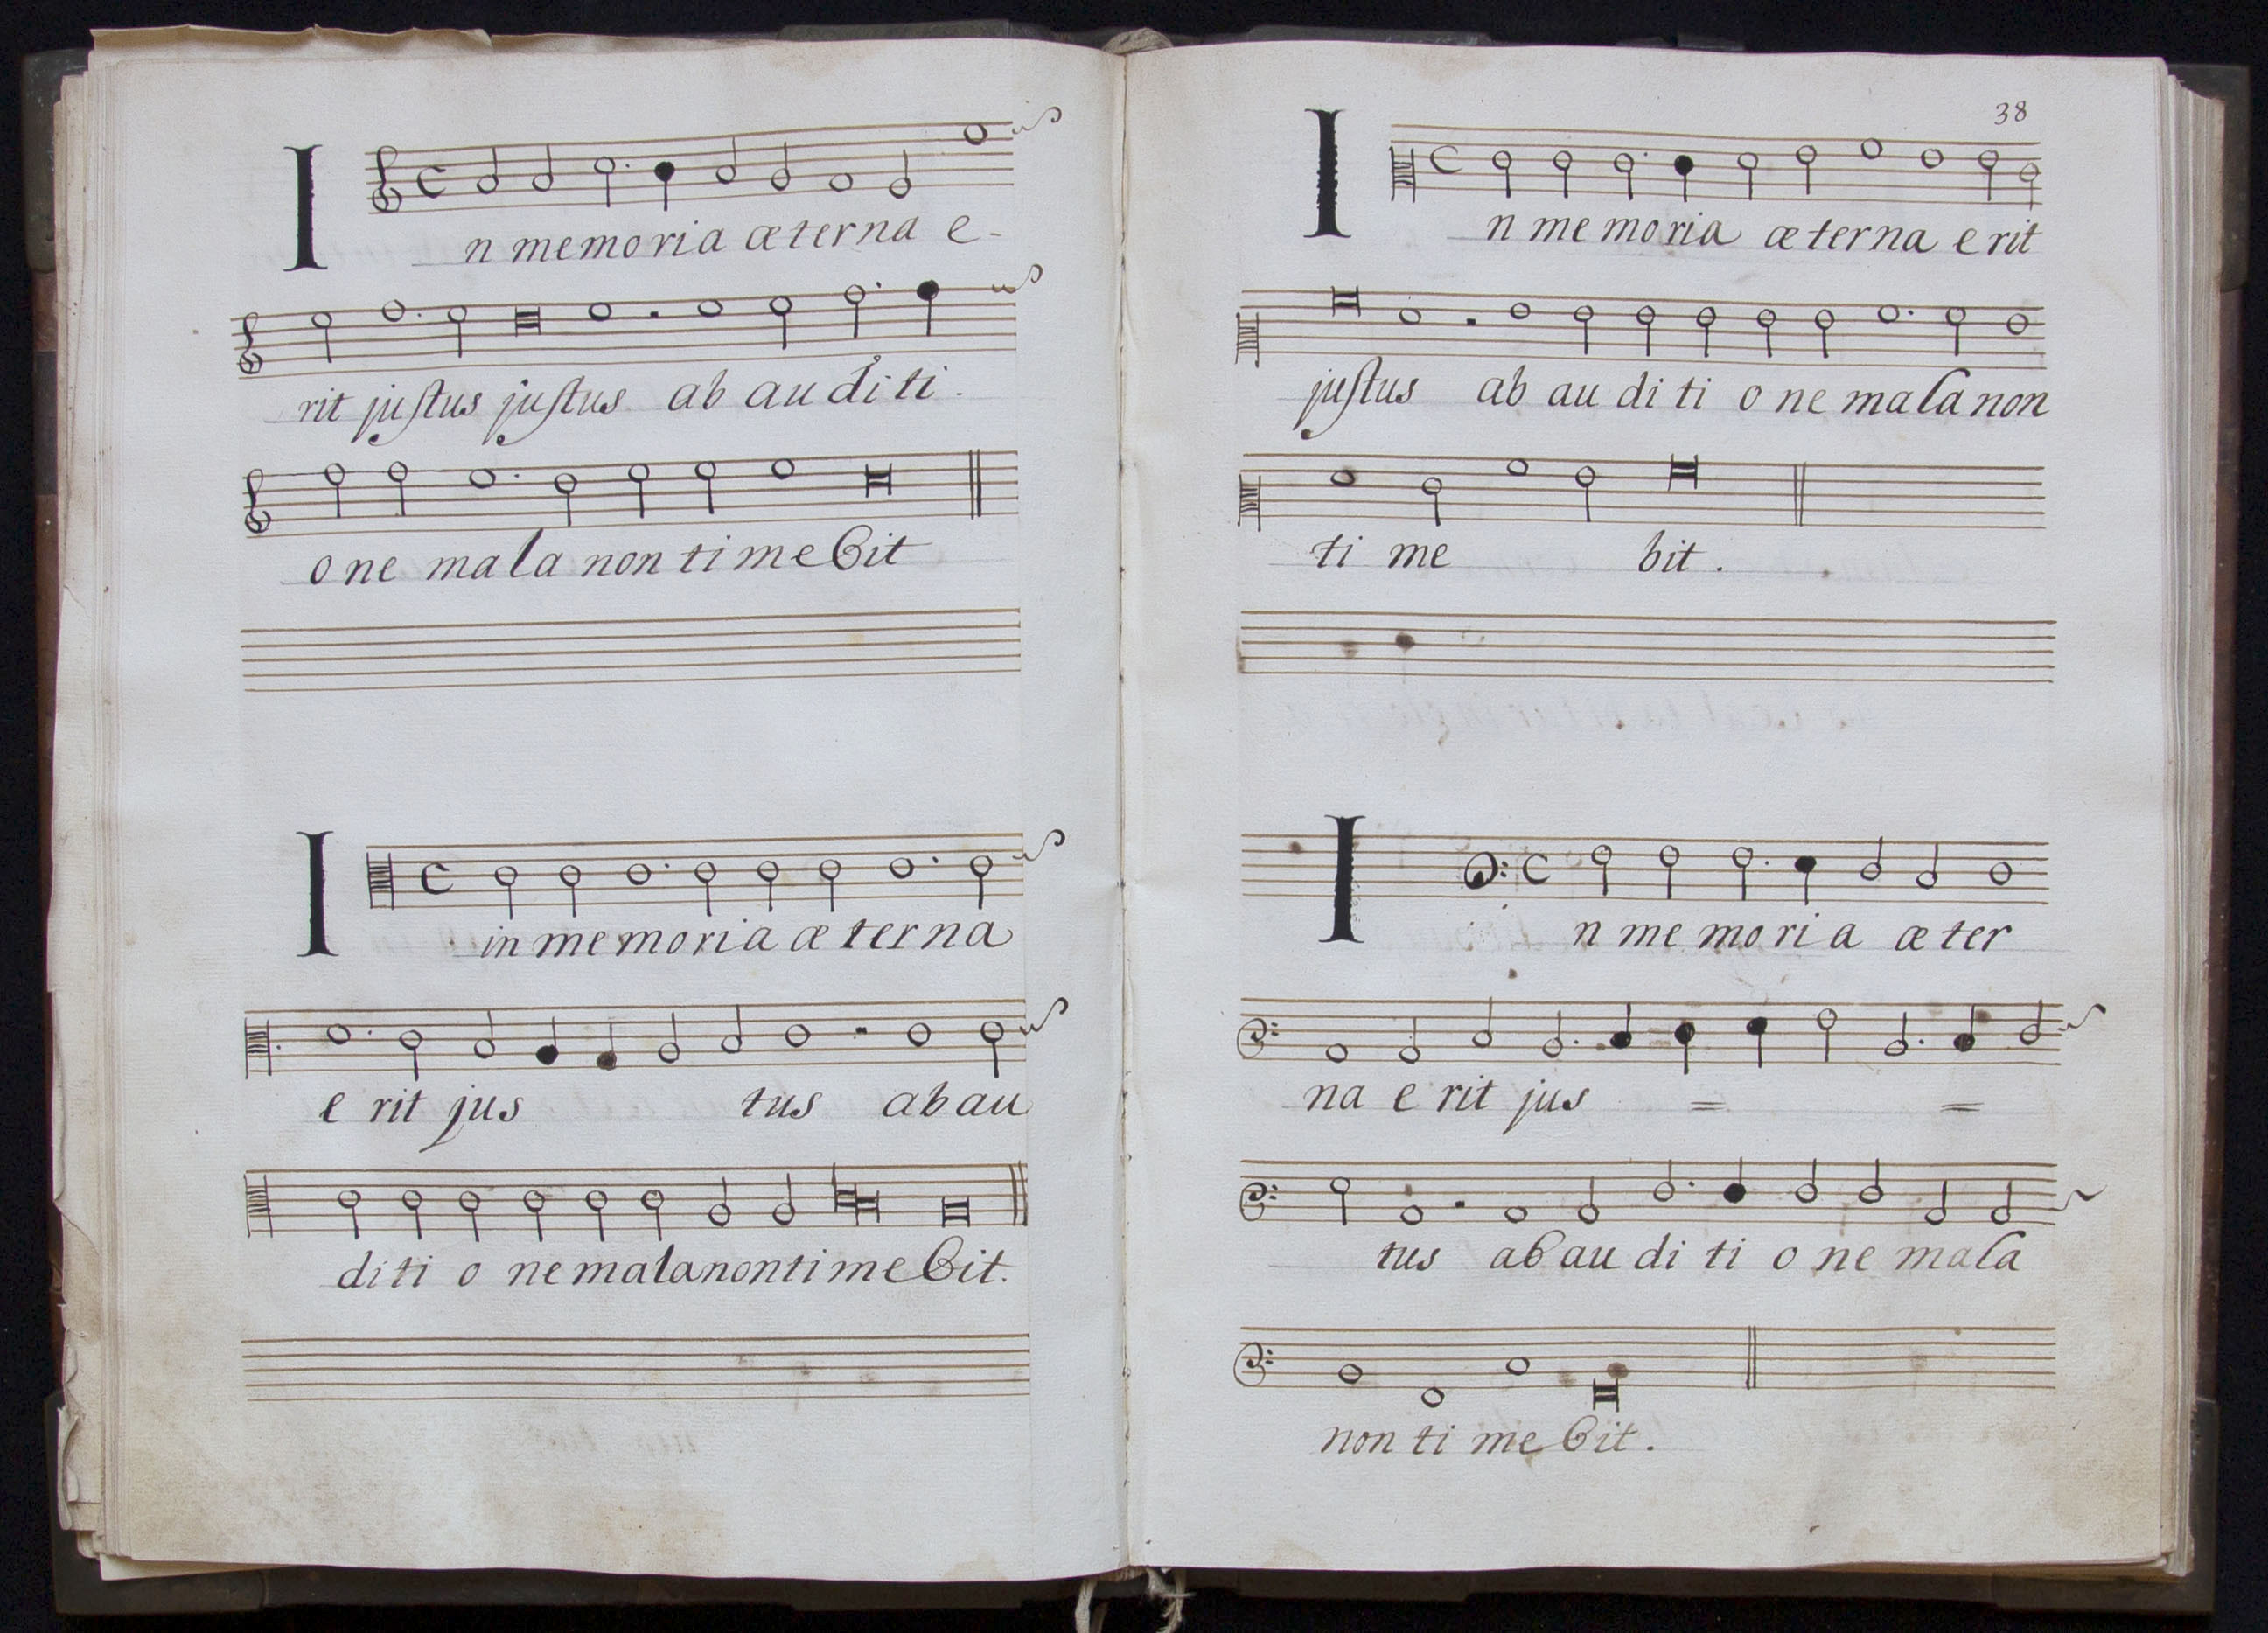 In memoria æterna e-
rit justus justus ab auditi.
one mala non timebit
Iin memoria æterna
erit jus tus ab au
diti o ne mala non timebit.
38
In memoria æterna erit
justus ab auditi o ne mala non
time bit.
In memoria æter
na erit jus = =
tus ab au di ti o ne mala
non timebit.